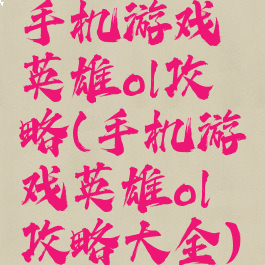 手机游戏
英雄ol攻
略(手机游
戏英雄ol
攻略大全)